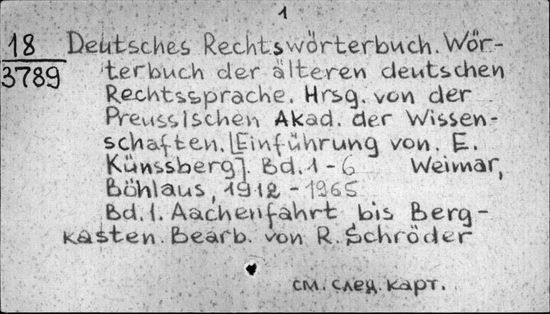 1
18
3789
Deutsches Rechtswörterbuch. Wör-
terbuch der älteren deutschen
Rechtssprache. Hrsg. von der
Preussischen Akad. der Wissen-
schaften. [Einführung von. E.
Künssberg]. Bd. 1-6 Weimar,
Böhlaus, 1912-1965
Bd. 1. Aachenfahrt bis Berg-
kasten. Bearb. von R. Schröder
см. след. карт.